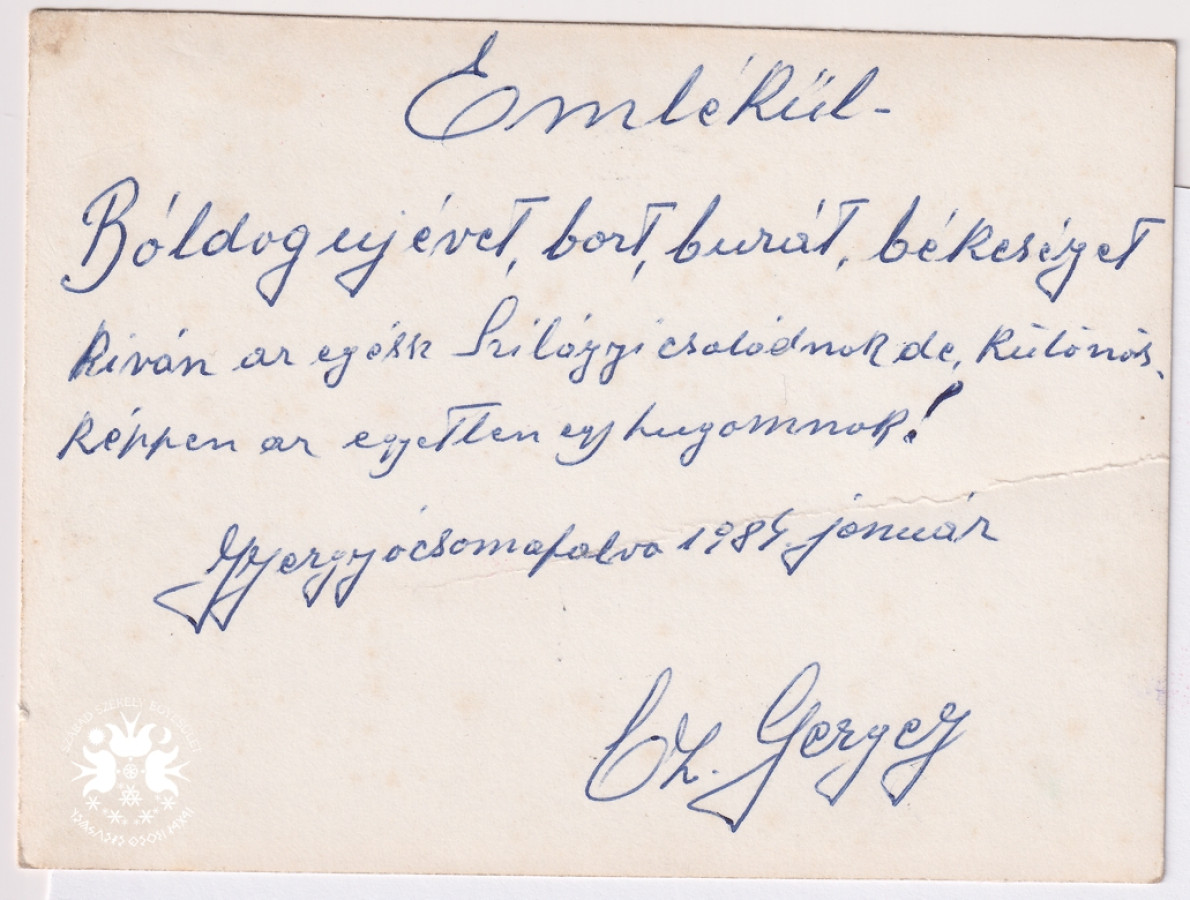 Emlékül-
Bóldog ujévet, bort, burát, békeséget
kíván az egész Szilágyi családnak de, különös-
képpen az egyetlen egy hugomnak!
Gyergyócsomafalva 1984. január
Cz. Gergey
SZABAD SZÉKELY EGYESÜLET